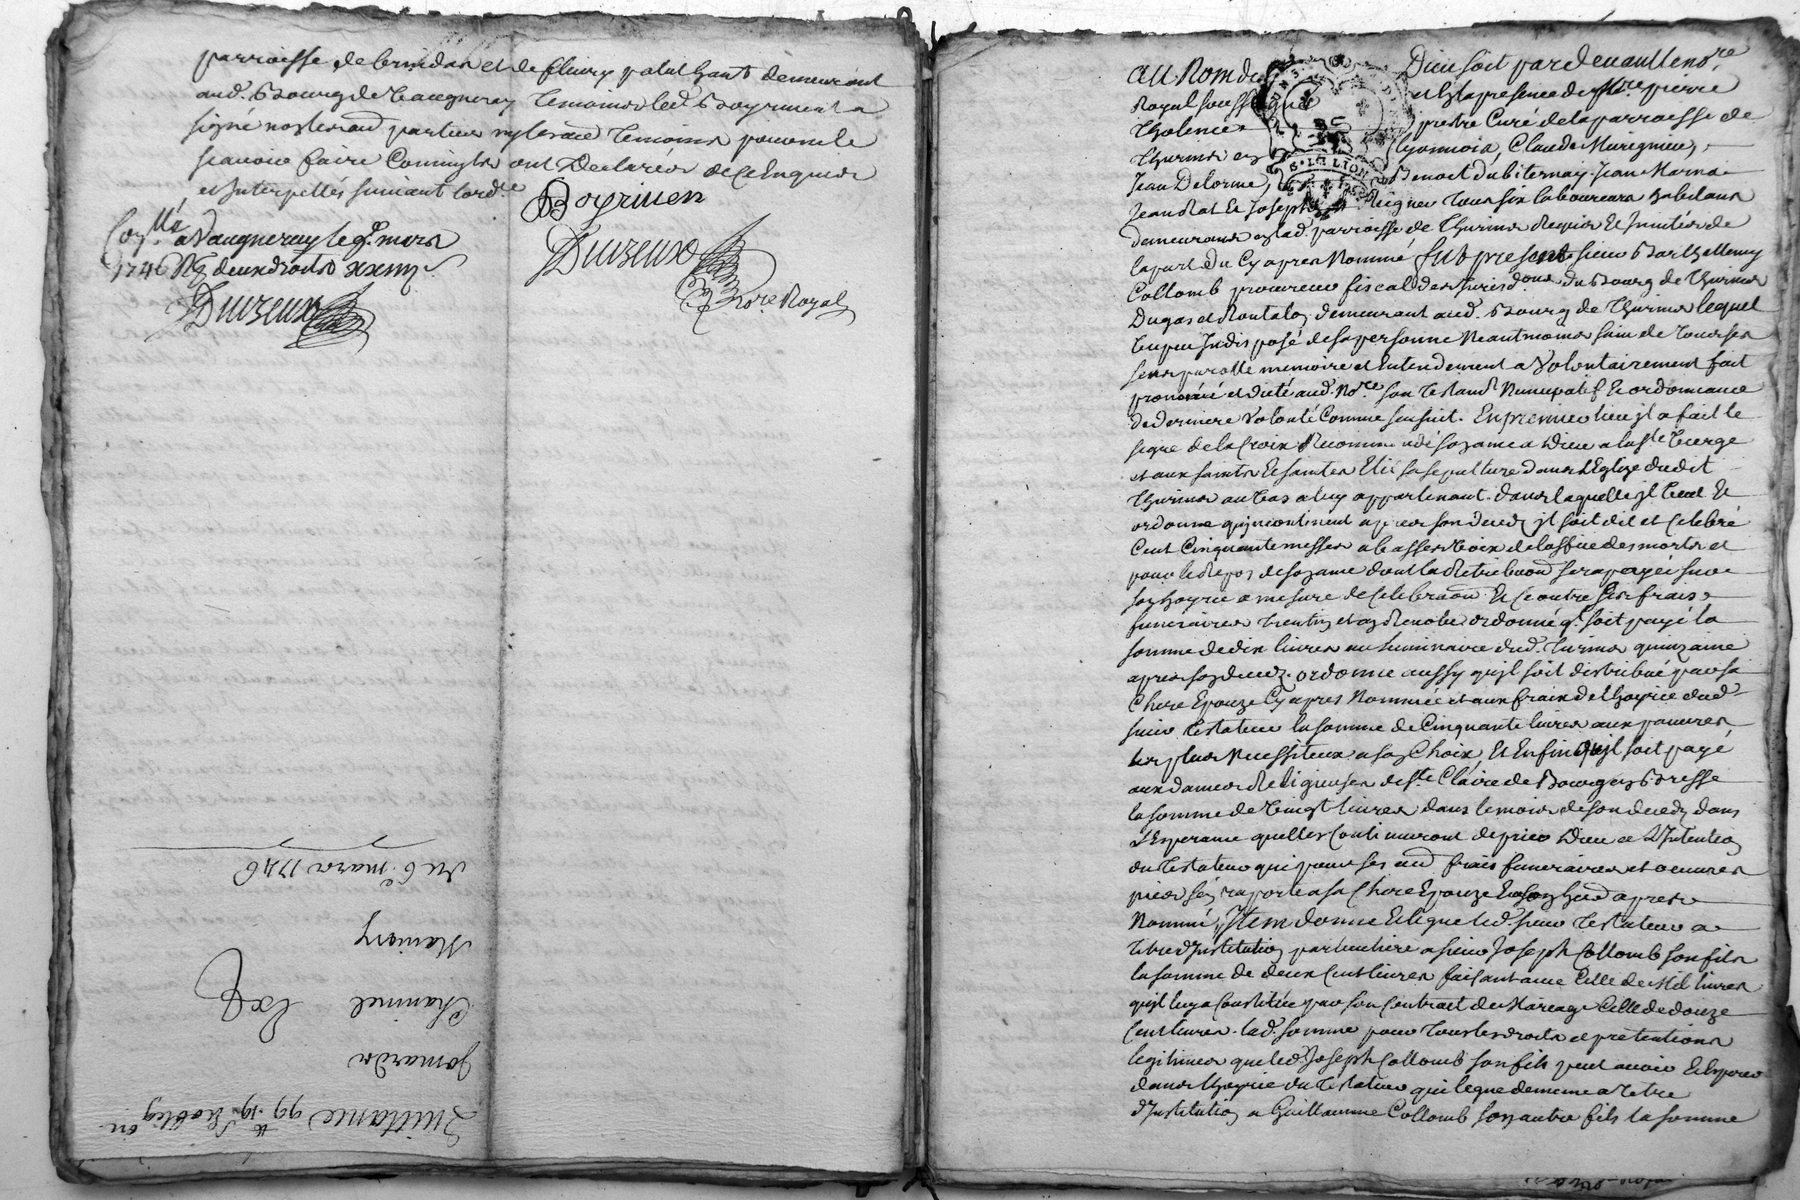 parroisse de brindas et de fleury patut gants demeurant
aud. Bourg de Vaugneray temoins led. Boyriven a
signé non lesd. parties ny lesd. temoins pour ne le
scavoir faire Comme ils ont Declarés de ce Enquis
et Interpellés suivant lord.ce
Boyriven
Duizeux
No.re Royal
Con.llé a Vaugneray le 9.e mars
1746 Rç deux droits
Duizeux
du 6.e mars 1746
Mainory
Chaninel
Jomardn
Quittance 99.lt 19.s
AU Nom de Dieu soit par devant le no.re
Royal soussigné et En la presence de M.re pierre
Tholence prestre Curé de la parroisse de
Thurins en lyonnois, Claude Murigneux,
Jean Delorme, Benoist Dubiternay, Jean Marna
Jean Rat Et Joseph tous six laboureurs habitans
demeurans en lad. parroisse de Thurins Requis Et Invités de
la part du Cy apres Nommé fut present sieur Barthellemy
Collomb procureur fiscal des Jurisd.ons du Bourg de Thurins
Dugas et Rontalon demeurant aud. Bourg de Thurins lequel
un peu Indisposé de sa personne Neantmoins sain de tous ses
sens parolle memoire et Entendement a Volontairement fait
prononcé et dicté aud. No.re son testam.t Nuncupatif Et ordonnance
de derniere Volonté Comme sensuit. En premier lieu jl a fait le
signe de la Croix Recommendé son ame a Dieu a la s.te Vierge
et aux saints Et saintes Elit sa sepulture dans l'Eglize dudit
Thurins au Vas a luy appartenant. dans laquelle jl Veut Et
ordonne qu'jncontinent apres son deceds jl soit dit et Celebré
Cent Cinquante messes a basses Voix de loffice des morts et
pour le Repos de son ame dont la Retribuon sera payée sur
son hoyrie a mesure de Celebraon Et Ce outre ses frais
funeraires ordonne q. soit payé la
somme de dix livres au luminaire dud. Thurins quinzaine
apres son deceds. ordonne aussy qu'jl soit distribué par sa
Chere Epouze Cy apres Nommée et aux fraix de l'hoyrie dud.
sieur testateur la somme de Cinquante livres aux pauvres
les plus Necessiteux a son Choix, Et Enfin qu'jl soit payé
aux dames Religieuses de s.te Claire de Bourg en Bresse
la somme de Vingt livres dans le mois de son deceds dans
l'Esperance quelles Continueront de prier Dieu a l'Intention
du testateur qui pour ses aud. frais funeraires et oeuvres
pies s'en raporte a sa Chere Epouze Et son hered. apres
Nommé, Item donne Et legue led. sieur testateur a
titre d'Institution particuliere a sieur Joseph Collomb son fils
la somme de deux Cent livres faisant avec Celle de Mil livres
qu'jl luy a Constituée par son Contract de Mariage Celle de douze
Cent livres. lad. somme pour tous les droits et pretentions
legitimes que led. Joseph Collomb son fils peut avoir Et Esperer
dans l'hoyrie du testateur qui legue de meme a titre
d'Institution a Guillaume Collomb son autre fils la somme